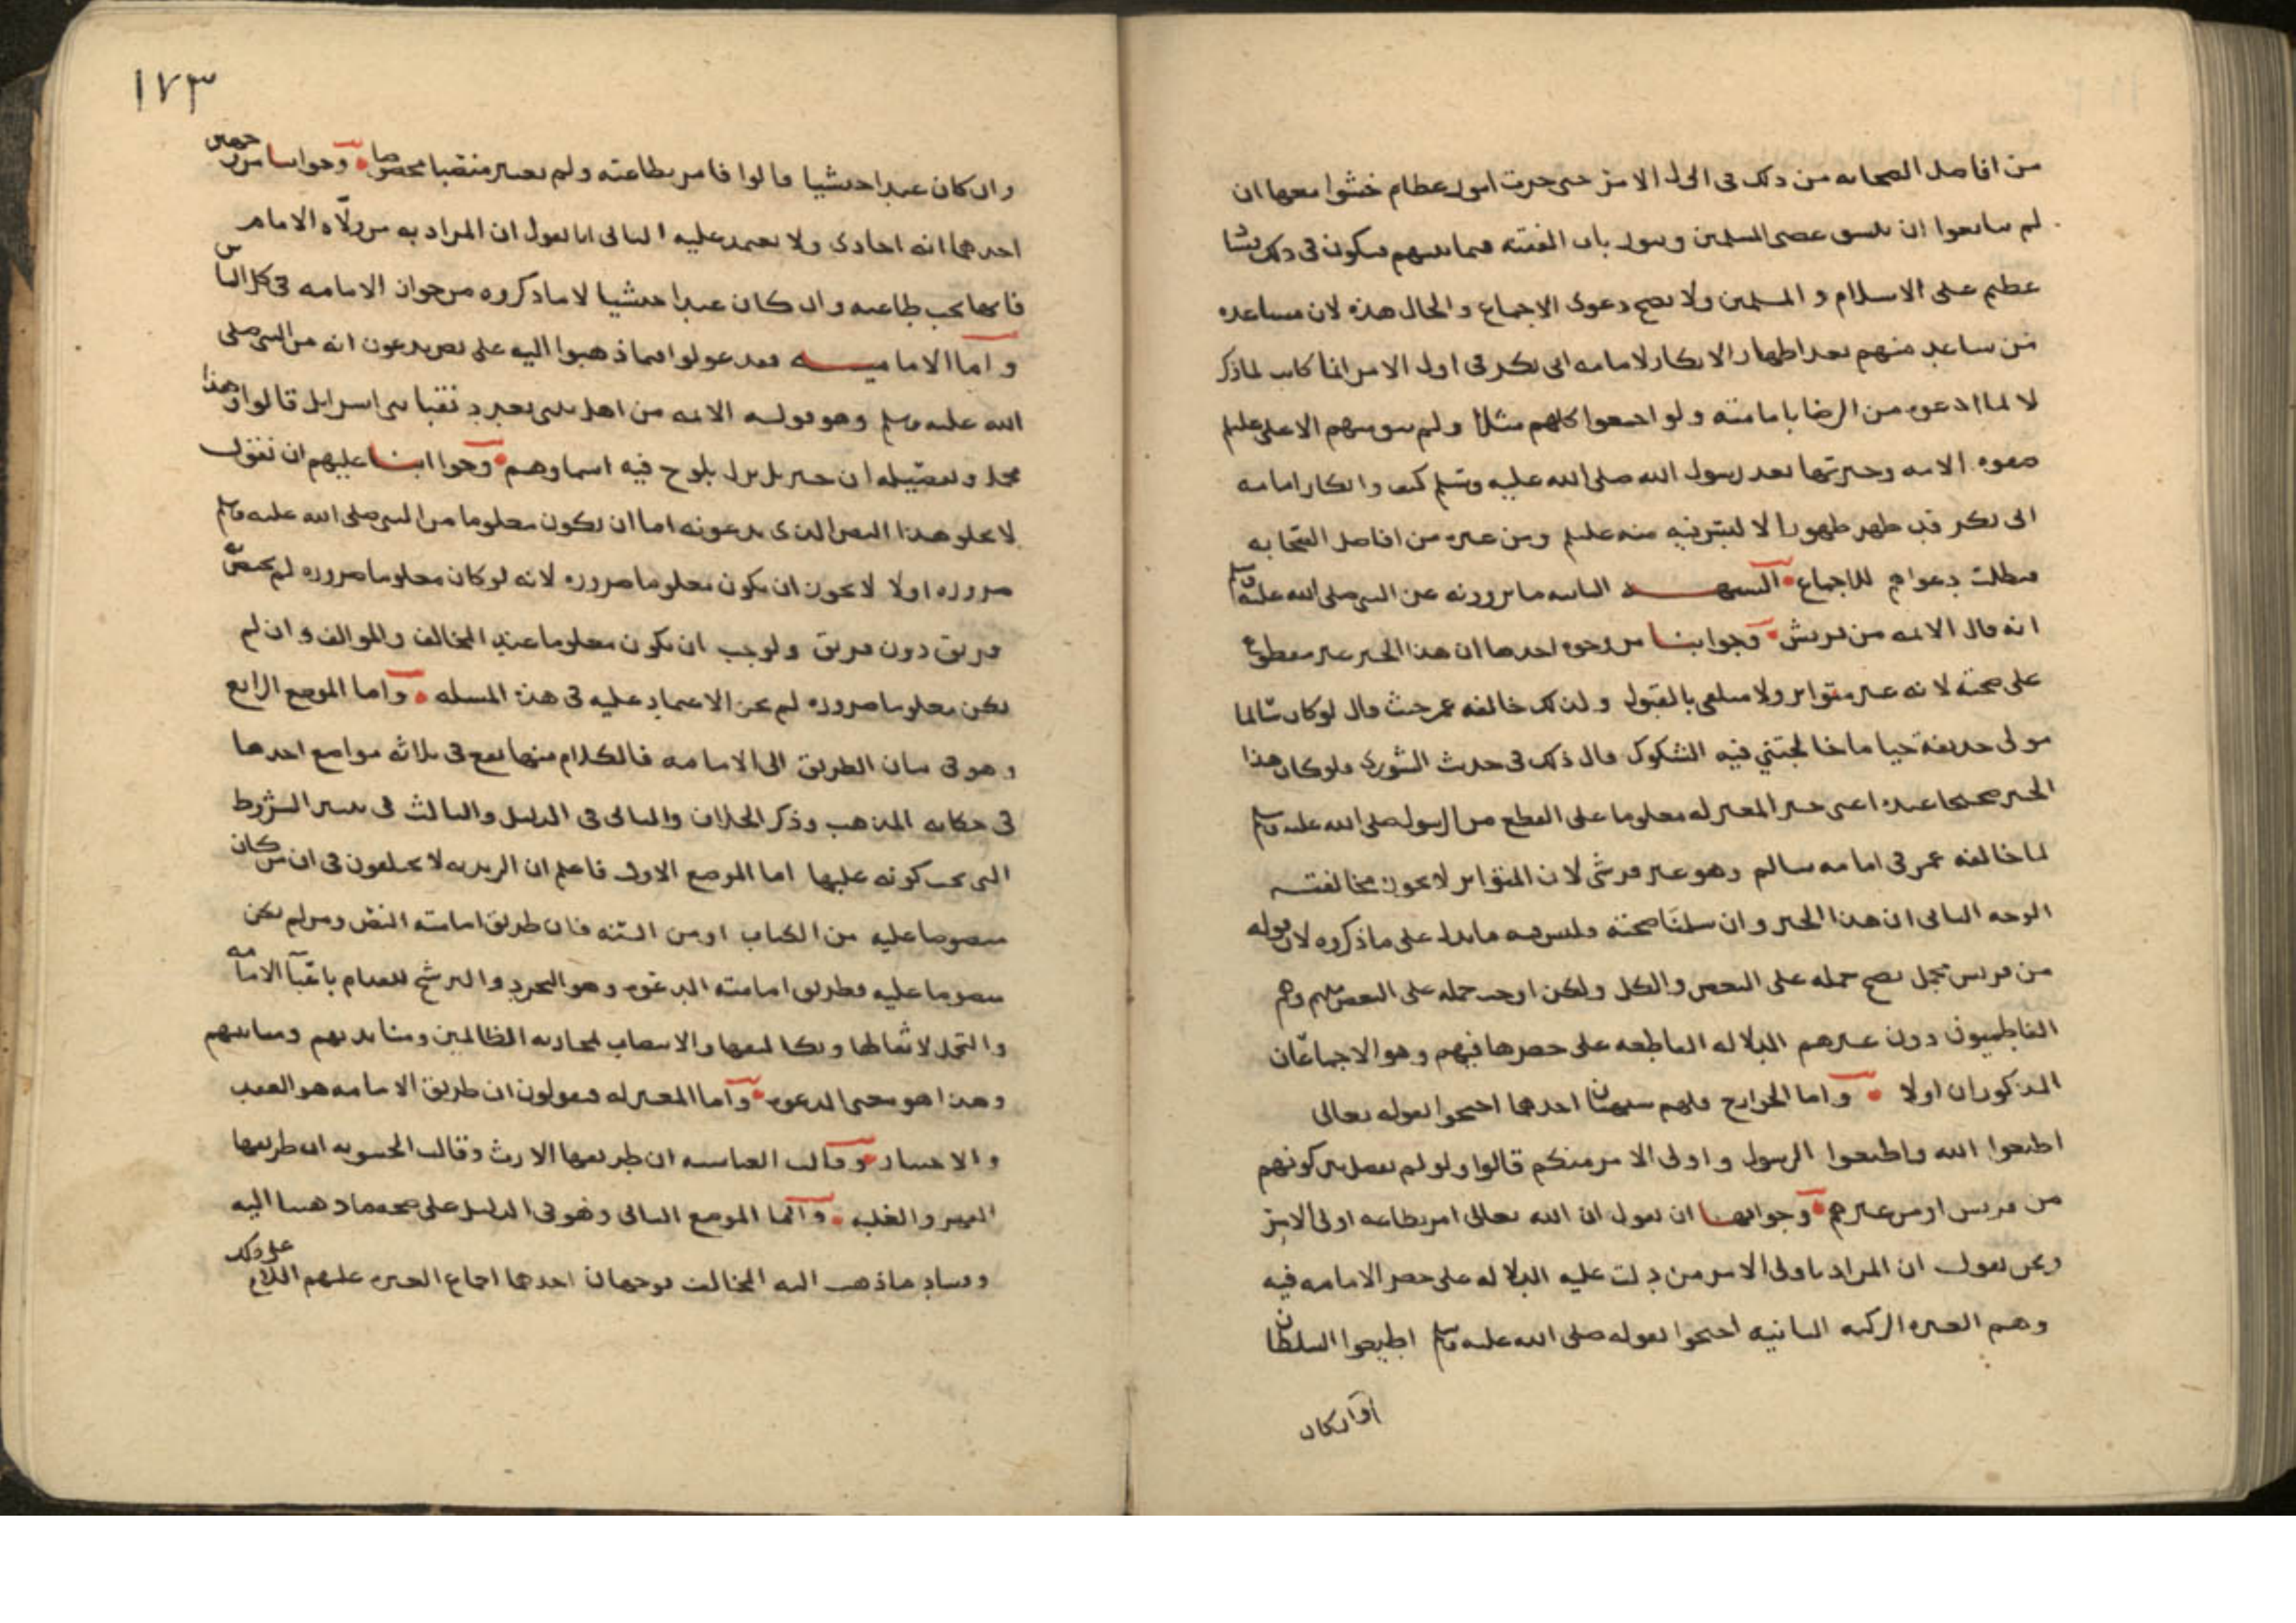 من افاضل الصحابه من ذلك فى اول الامر حتى جرت امور عظام خشوا معها ان
لم سابعوا ان عصى المسلمين وىىول باب الفتنه فيما بينهم فيكون فى ذلك
عظيم على الاسلام و المسلمين ولا يصح دعوى الاجماع والحال هذه لان مساعده
من ساعد منهم بعد اظهار الانكار لامامه ابى بكر فى اول الامر انما كانت لما ذكر
لا لما ادعوه من الرضا بامامته ولو اجمعوا كلهم مثلا ولم الا على عليلم
صفوه الامه وخيرتها بعد رسول الله صلى الله عليه وسلم كيف وانكار امامه
ابى بكر قد ظهر ظهورا لا لبس فيه منه عليلم ومن غيره من افاضل الصحابه
فبطلت دعواهم للاجماع الشبهـــه الثانيه ما يروونه عن النبى صلى الله عليه وسلم
انه قال الائمه من قريش وجوابنـا من وجوه احدها ان هذا الخبر غير مقطوع
على صحته لانه غير متواتر ولا متلقى بالقبول ولذلك خالفه عمر حيث قال لو كان سالما
مولى حذيفة حيا ما خالجتني فيه الشكوك قال ذلك فى حديث الشورى فلو كان هذا
الخبر صحيحا عنده اعنى خبر المعتزله معلوما على القطع من الرسول صلى الله عليه وسلم
لما خالفه عمر فى امامه سالم وهو غير قرشى لان المتواتر لا يجوز مخالفته
الوجه الثانى ان هذا الخبر وان سلمنا صحته فليس فيه ما يدل على ما ذكروه لان قوله
من قريش مجمل يصح حمله على البعض والكل ولكن اوجب حمله على البعض منهم وهم
الفاطميون دون غيرهم الدلاله القاطعه على حصرها فيهم وهو الاجماعان
المذكوران اولا واما الخوارج فلهم شبهتان احدهما احتجوا بقوله تعالى
اطيعوا الله واطيعوا الرسول واولى الامر منكم قالوا ولو لم يفصل بين كونهم
من قريش او من غيرهم وجوابهـا ان نقول ان الله تعالى امر بطاعه اولى الامر
ونحن نقول ان المراد باولى الامر من دلت عليه الدلاله على حصر الامامه فيه
وهم العتره الزكيه الثانيه احتجوا بقوله صلى الله عليه وسلم اطيعوا السلطان
وان كان
١٧٣
وان كان عبدا حبشيا قالوا فامر بطاعته ولم يعتبر منصبا مخصوصا وجوابنـا من وجهين
احدهما انه احادى ولا يعتمد عليه الثانى انا نقول ان المراد به من ولاه الامام
فانها تجب طاعته وان كان عبدا حبشيا لا ما ذكروه من جواز الامامه فى كل الناس
واما الاماميـــه فقد عولوا فيما ذهبوا اليه على نص يدعون انه من النبى صلى
الله عليه وسلم وهو قوله الائمه من اهل بيتى بعدد نقبا بنى اسرايل قالوا وهذا
مجمل وتفصيله ان جبريل نزل بلوح فيه اسماوهم وجوابنـا عليهم ان نقول
لا يخلو هذا النص الذى يدعونه اما ان يكون معلوما من النبى صلى الله عليه وسلم
ضروره اولا لا يجوز ان يكون معلوما ضروره لانه لو كان معلوما ضروره لم يختص
فريق دون فريق ولوجب ان يكون معلوما عند المخالف والموالف وان لم
يكن معلوما ضروره لم يجز الاعتماد عليه فى هذه المسله واما الموضع الرابع
وهو فى بيان الطريق الى الامامه فالكلام منها يقع فى ثلاثه مواضع احدها
فى حكايه المذهب وذكر الخلاف والثانى فى الدليل والثالث فى تفسير الشروط
التى يجب كونه عليها اما الموضع الاول فاعلم ان الزيديه لا يختلفون فى ان من كان
منصوصا عليه من الكتاب او من السنه فان طريق امامته النص ومن لم يكن
منصوصا عليه فطريق امامته الدعوه وهو التجرد والترشح للقيام باعبا الامامه
والتحمل لاثقالها وتكاليفها والانتصاب لمحاربه الظالمين ومنابذتهم ومباينتهم
وهذا هو معنى الدعوه واما المعتزله فيقولون ان طريق الامامه هو العقد
والاختيار وقالت العباسيه ان طريقها الارث وقالت الحشويه ان طريقها
القهر والغلبه واما الموضع الثانى وهو فى الدليل على صحه ما ذهبنا اليه
وفساد ما ذهب اليه المخالف فوجهان احدهما اجماع العتره عليهم السلام على ذلك